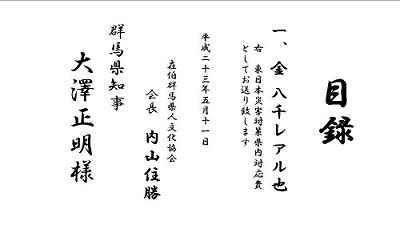 目録
一、金 八千レアル也
右 東日本災害対策県内対応費
としてお送り致します
平成二十三年五月十一日
在伯群馬県人文化協会
会長 内山住勝
群馬県知事
大澤正明様